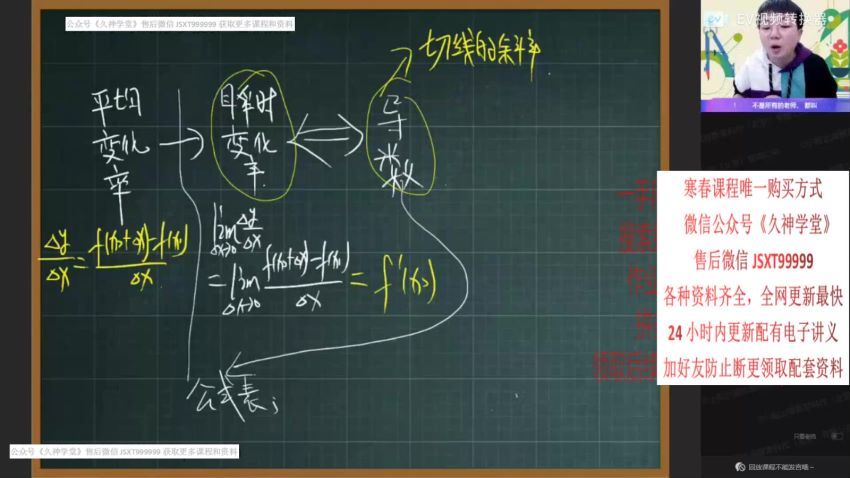 公众号《久神学堂》售后微信 JSXT999999 获取更多课程和资料
EV视频转换器
切线的斜率
平均变化率
瞬时变化率
导数
不是所有的老师,都叫
lim Δx→0 Δy/Δx
Δy/Δx = f(x₀+Δx)-f(x₀)/Δx
= lim Δx→0 f(x₀+Δx)-f(x₀)/Δx = f'(x₀)
公式表;
寒春课程唯一购买方式
微信公众号《久神学堂》
售后微信 JSXT99999
各种资料齐全，全网更新最快
24 小时内更新配有电子讲义
加好友防止断更领取配套资料
只看老师
公众号《久神学堂》售后微信 JSXT999999 获取更多课程和资料
回放课程不能发言哦~